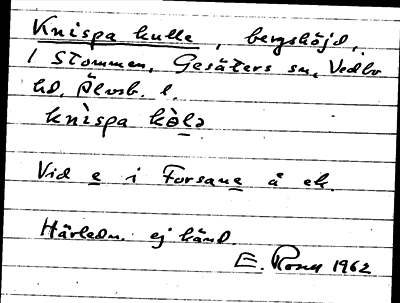 Knispa kulle, bergshöjd,
I Stommen, Gesäters sn, Vedbo
hd, Älvsb. l.
knìspa kòlə
Vid e i Forsane å ek.
Härledn. ej känd.
E. 1962